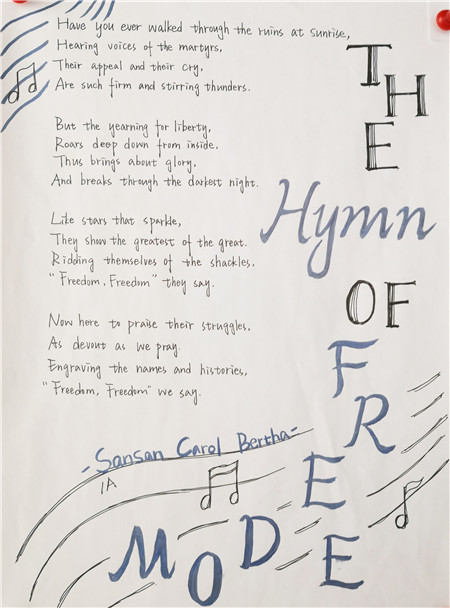 Have you ever walked through the ruins at sunrise,
Hearing voices of the martyrs,
Their appeal and their cry,
Are such firm and stirring thunders.
But the yearning for liberty,
Roars deep down from inside,
Thus brings about glory,
And breaks through the darkest night.
Like stars that sparkle,
They show the greatest of the great.
Ridding themselves of the shackles,
"Freedom, Freedom" they say.
Now here to praise their struggles,
As devout as we pray
Engraving the names and histories,
"Freedom, Freedom" we say.
-Sansan Carol Bertha-
1A
THE
Hymn
OF
FREE
MOD